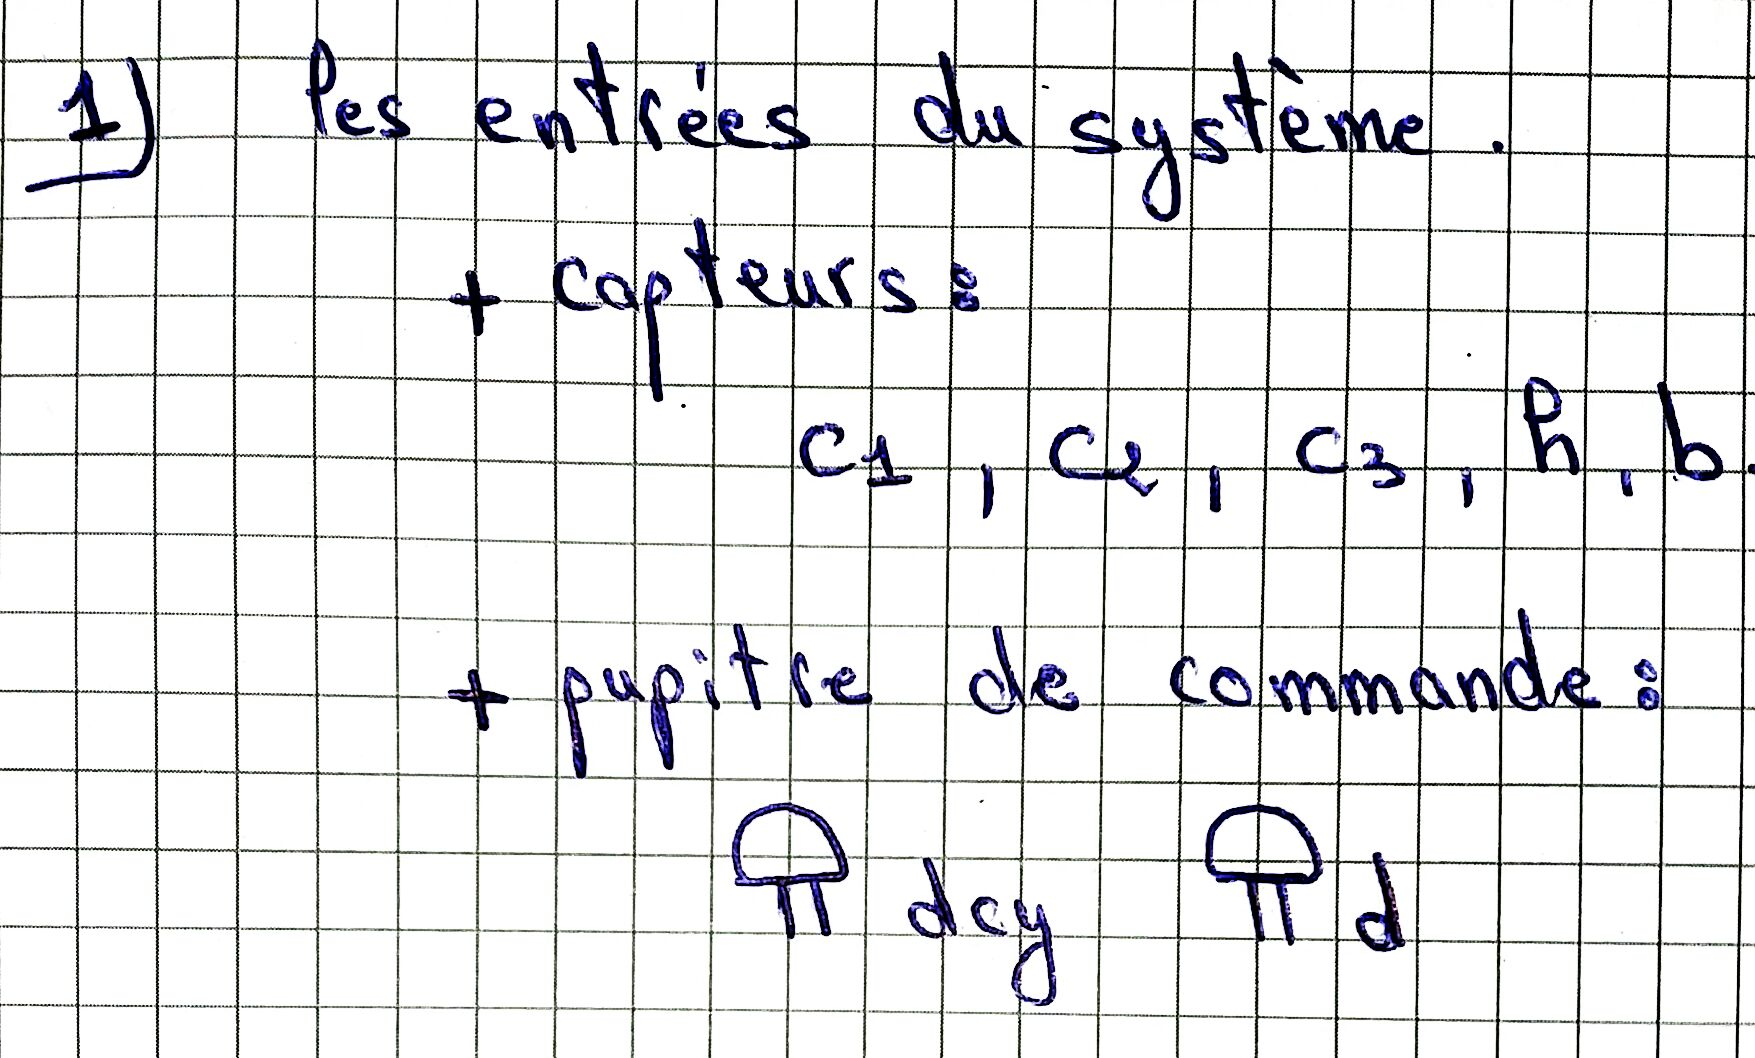 1) les entrées du système.
+ capteurs :
c1, c2, c3, h, b.
+ pupitre de commande :
dcy d